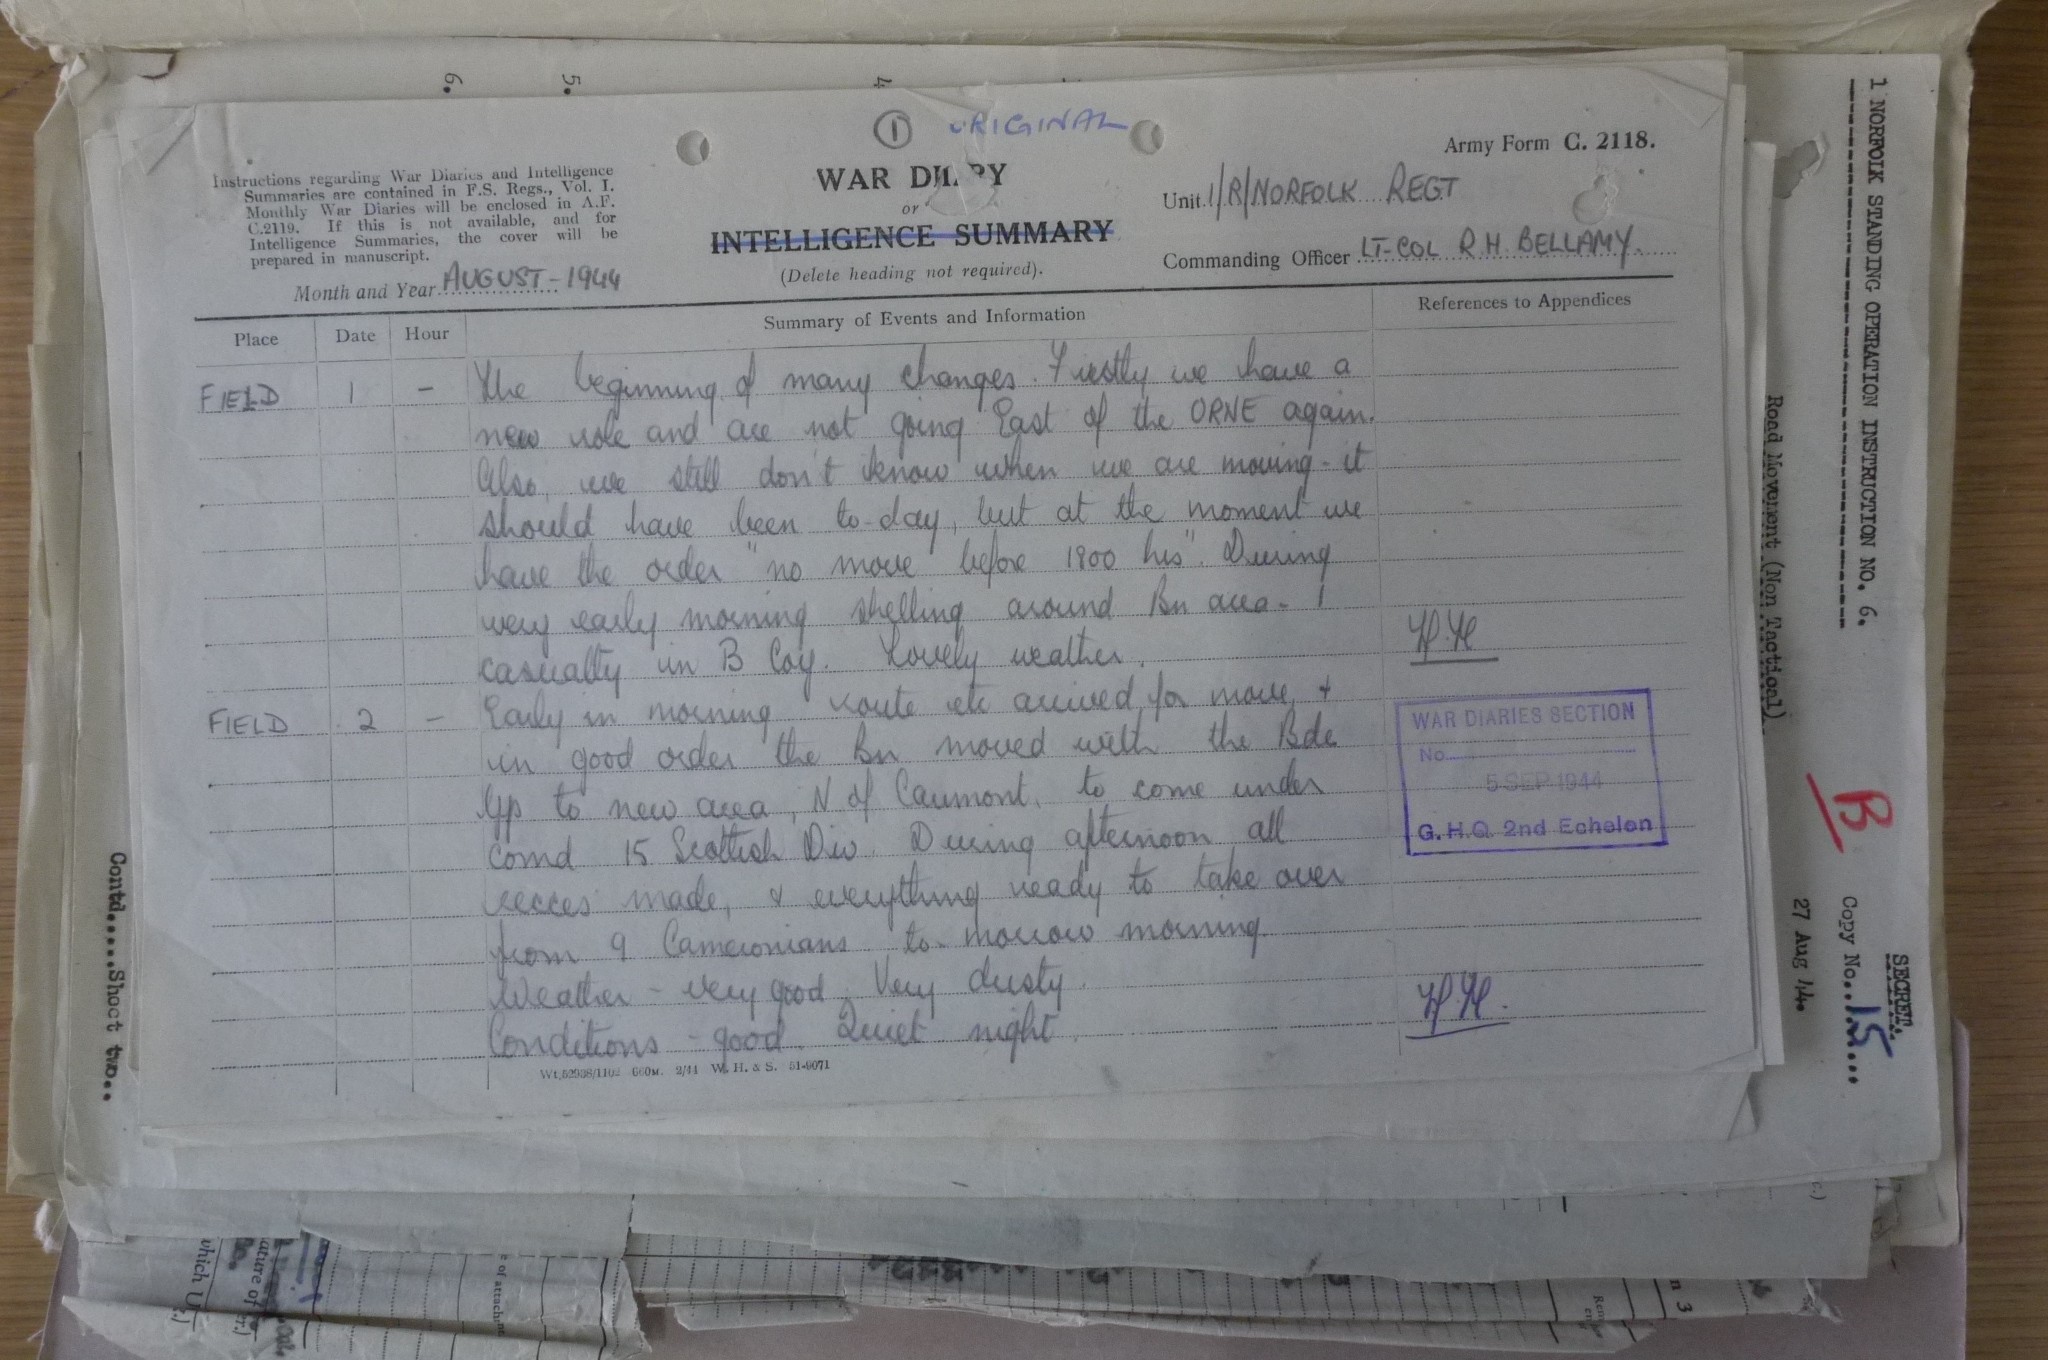 6.
5.
4
① ORIGINAL
Army Form C. 2118.
Instructions regarding War Diaries and Intelligence
Summaries are contained in F.S. Regs., Vol. I.
Monthly War Diaries will be enclosed in A.F.
C.2119. If this is not available, and for
Intelligence Summaries, the cover will be
prepared in manuscript.
Month and Year AUGUST-1944
WAR DIARY
or
INTELLIGENCE SUMMARY
(Delete heading not required).
Unit 1/R/NORFOLK REGT
Commanding Officer LT-COL R.H. BELLAMY.
Place Date Hour Summary of Events and Information References to Appendices
FIELD 1 - The beginning of many changes. Firstly we have a
new role and are not going East of the ORNE again.
Also, we still don't know when we are moving - it
should have been to-day, but at the moment we
have the order "no move before 1800 hrs". During
very early morning shelling around Bn area - 1
casualty in B Coy. Lovely weather.
FIELD 2 - Early in morning route etc arrived for move, +
in good order the Bn moved with the Bde
Gp to new area, N of Caumont, to come under
comd 15 Scottish Div. During afternoon all
recces made, & everything ready to take over
from 9 Cameronians to-morrow morning.
Weather - very good. Very dusty.
Conditions - good. Quiet night.
WAR DIARIES SECTION
No.
5 SEP 1944
G.H.Q. 2nd Echelon
Wt.52938/1102 660M. 2/44 W. H. & S. 51-9071
1 NORFOLK STANDING OPERATION INSTRUCTION NO. 6.
Road Movement (Non Tactical)
B
SECRET.
Copy No..15....
27 Aug 44.
Contd.....Sheet two..
which U
ature of
e of attachm
n 3